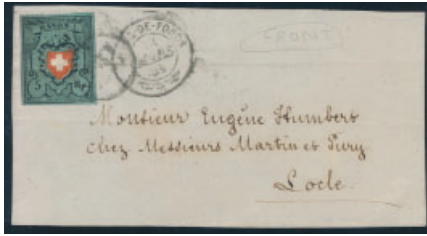 FRONT
Monsieur Eugène Humbert
chez Messieurs Martin et Jury
Locle.